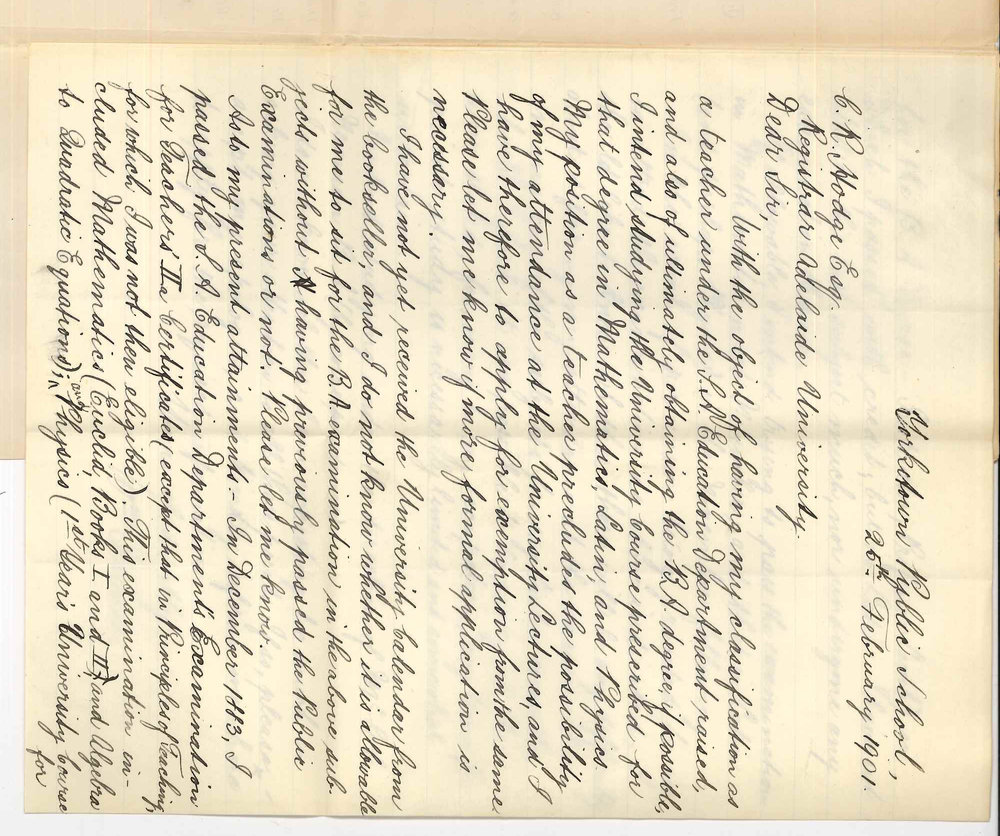 Yorketown Public School,
26th February, 1901.
C. R. Hodge Esq.
Registrar Adelaide University.
Dear Sir,
With the object of having my classification as
a teacher under the S.A. Education Department raised,
and also of ultimately obtaining the B.A. degree, if possible,
I intend studying the University Course prescribed for
that degree in Mathematics, Latin, and Physics.
My position as a teacher precludes the possibility
of my attendance at the University Lectures, and I
have therefore to apply for exemption from the same.
Please let me know if more formal application is
necessary.
I have not yet received the University Calendar from
the bookseller, and I do not know whether it is allowable
for me to sit for the B.A. examination in the above sub-
jects without having previously passed the Public
Examinations or not. Please let me know.
As to my present attainments - In December 1883, I
passed the S.A. Education Department's Examination
for Teachers' II Certificates (except that in Principles of Teaching,
for which I was not then eligible). This examination in-
cluded Mathematics (Euclid Books I and II, and Algebra
to Quadratic Equations); and Physics (1st Year's University Course
for